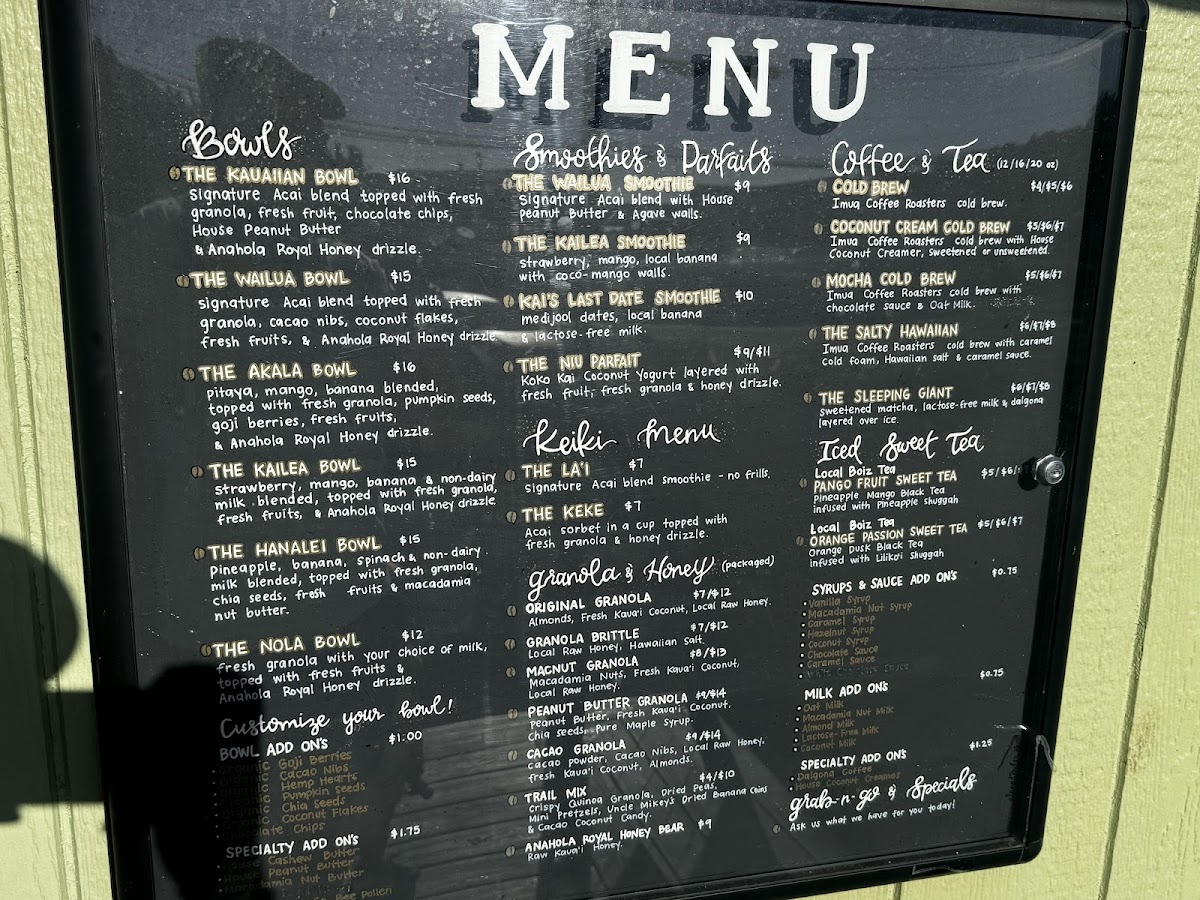 MENU
Bowls
THE KAUAIIAN BOWL $16
Signature Acai blend topped with fresh
granola, fresh fruit, chocolate chips,
House Peanut Butter
& Anahola Royal Honey drizzle.
THE WAILUA BOWL $15
Signature Acai blend topped with fresh
granola, cacao nibs, coconut flakes,
fresh fruits, & Anahola Royal Honey drizzle.
THE AKALA BOWL $16
pitaya, mango, banana blended,
topped with fresh granola, pumpkin seeds,
goji berries, fresh fruits,
& Anahola Royal Honey drizzle.
THE KAILEA BOWL $15
strawberry, mango, banana & non-dairy
milk blended, topped with fresh granola,
fresh fruits, & Anahola Royal Honey drizzle.
THE HANALEI BOWL $15
Pineapple, banana, spinach & non-dairy
milk blended, topped with fresh granola,
chia seeds, fresh fruits & macadamia
nut butter.
THE NOLA BOWL $12
fresh granola with your choice of milk,
topped with fresh fruits &
Anahola Royal Honey drizzle.
Customize your bowl!
BOWL ADD ON'S $1.00
Goji Berries
Cacao Nibs
Hemp Hearts
Pumpkin Seeds
Chia Seeds
Coconut Flakes
Chips
SPECIALTY ADD ON'S $1.75
Cashew Butter
House Peanut Butter
Macadamia Nut Butter
Bee Pollen
Smoothies & Parfaits
THE WAILUA SMOOTHIE $9
Signature Acai blend with House
Peanut Butter & Agave walls.
THE KAILEA SMOOTHIE $9
strawberry, mango, local banana
with coco-mango walls.
KAI'S LAST DATE SMOOTHIE $10
medijool dates, local banana
& lactose-free milk.
THE NIU PARFAIT $9/$11
Koko Kai Coconut Yogurt layered with
fresh fruit, fresh granola & honey drizzle.
Keiki Menu
THE LA'I $7
Signature Acai blend smoothie - no frills.
THE KEKE $7
Acai sorbet in a cup topped with
fresh granola & honey drizzle.
granola & Honey (packaged)
ORIGINAL GRANOLA $7/$12
Almonds, Fresh Kaua'i Coconut, Local Raw Honey.
GRANOLA BRITTLE $7/$12
Local Raw Honey, Hawaiian Salt.
MACNUT GRANOLA $8/$13
Macadamia Nuts, Fresh Kaua'i Coconut,
Local Raw Honey.
PEANUT BUTTER GRANOLA $9/$14
Peanut Butter, Fresh Kaua'i Coconut,
Chia seeds, Pure Maple Syrup.
CACAO GRANOLA $9/$14
cacao powder, Cacao Nibs, Local Raw Honey,
fresh Kaua'i Coconut, Almonds.
TRAIL MIX $4/$10
Crispy Quinoa Granola, Dried Peas,
Mini Pretzels, Uncle Mikey's Dried Banana Coins
& Cacao Coconut Candy.
ANAHOLA ROYAL HONEY BEAR $9
Raw Kaua'i Honey.
Coffee & Tea (12/16/20 oz)
COLD BREW $4/$5/$6
Imua Coffee Roasters cold brew.
COCONUT CREAM COLD BREW $5/$6/$7
Imua Coffee Roasters cold brew with House
Coconut Creamer, sweetened or unsweetened.
MOCHA COLD BREW $5/$6/$7
Imua Coffee Roasters cold brew with
chocolate sauce & Oat Milk.
THE SALTY HAWAIIAN $6/$7/$8
Imua Coffee Roasters cold brew with caramel
cold foam, Hawaiian salt & caramel sauce.
THE SLEEPING GIANT $6/$7/$8
sweetened matcha, lactose-free milk & dalgona
layered over ice.
Iced Sweet Tea
Local Boiz Tea
PANGO FRUIT SWEET TEA $5/$6/
Pineapple Mango Black Tea
infused with Pineapple Shuggah
Local Boiz Tea
ORANGE PASSION SWEET TEA $5/$6/$7
Orange Dusk Black Tea
infused with Liliko'i Shuggah
SYRUPS & SAUCE ADD ON'S $0.75
Vanilla Syrup
Macadamia Nut Syrup
Caramel Syrup
Hazelnut Syrup
Coconut Syrup
Chocolate Sauce
Caramel Sauce
White Chocolate Sauce
MILK ADD ON'S $0.75
Oat Milk
Macadamia Nut Milk
Almond Milk
Lactose-Free Milk
Coconut Milk
SPECIALTY ADD ON'S $1.25
Dalgona Coffee
House Coconut Creamer
grab-n-go & Specials
Ask us what we have for you today!